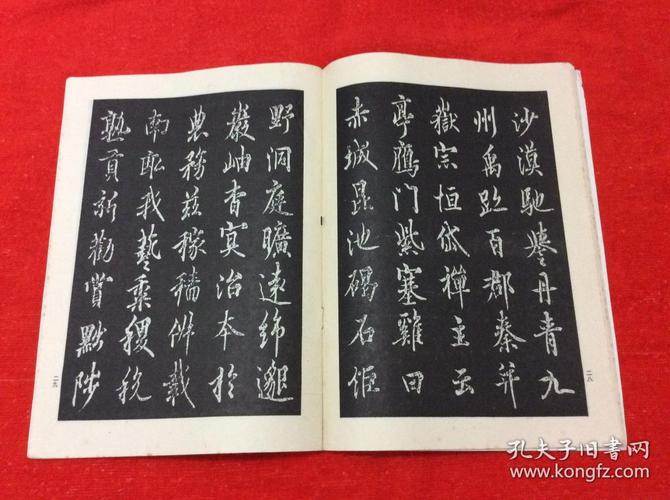 沙漠馳譽丹青九
州禹跡百郡秦并
嶽宗恒岱禪主云
亭鴈門紫塞雞田
赤城昆池碣石鉅
野洞庭曠遠綿邈
巖岫杳冥治本於
農務茲稼穡俶載
南畝我藝黍稷稅
熟貢新勸賞黜陟
二五
孔夫子旧书网
www.kongfz.com